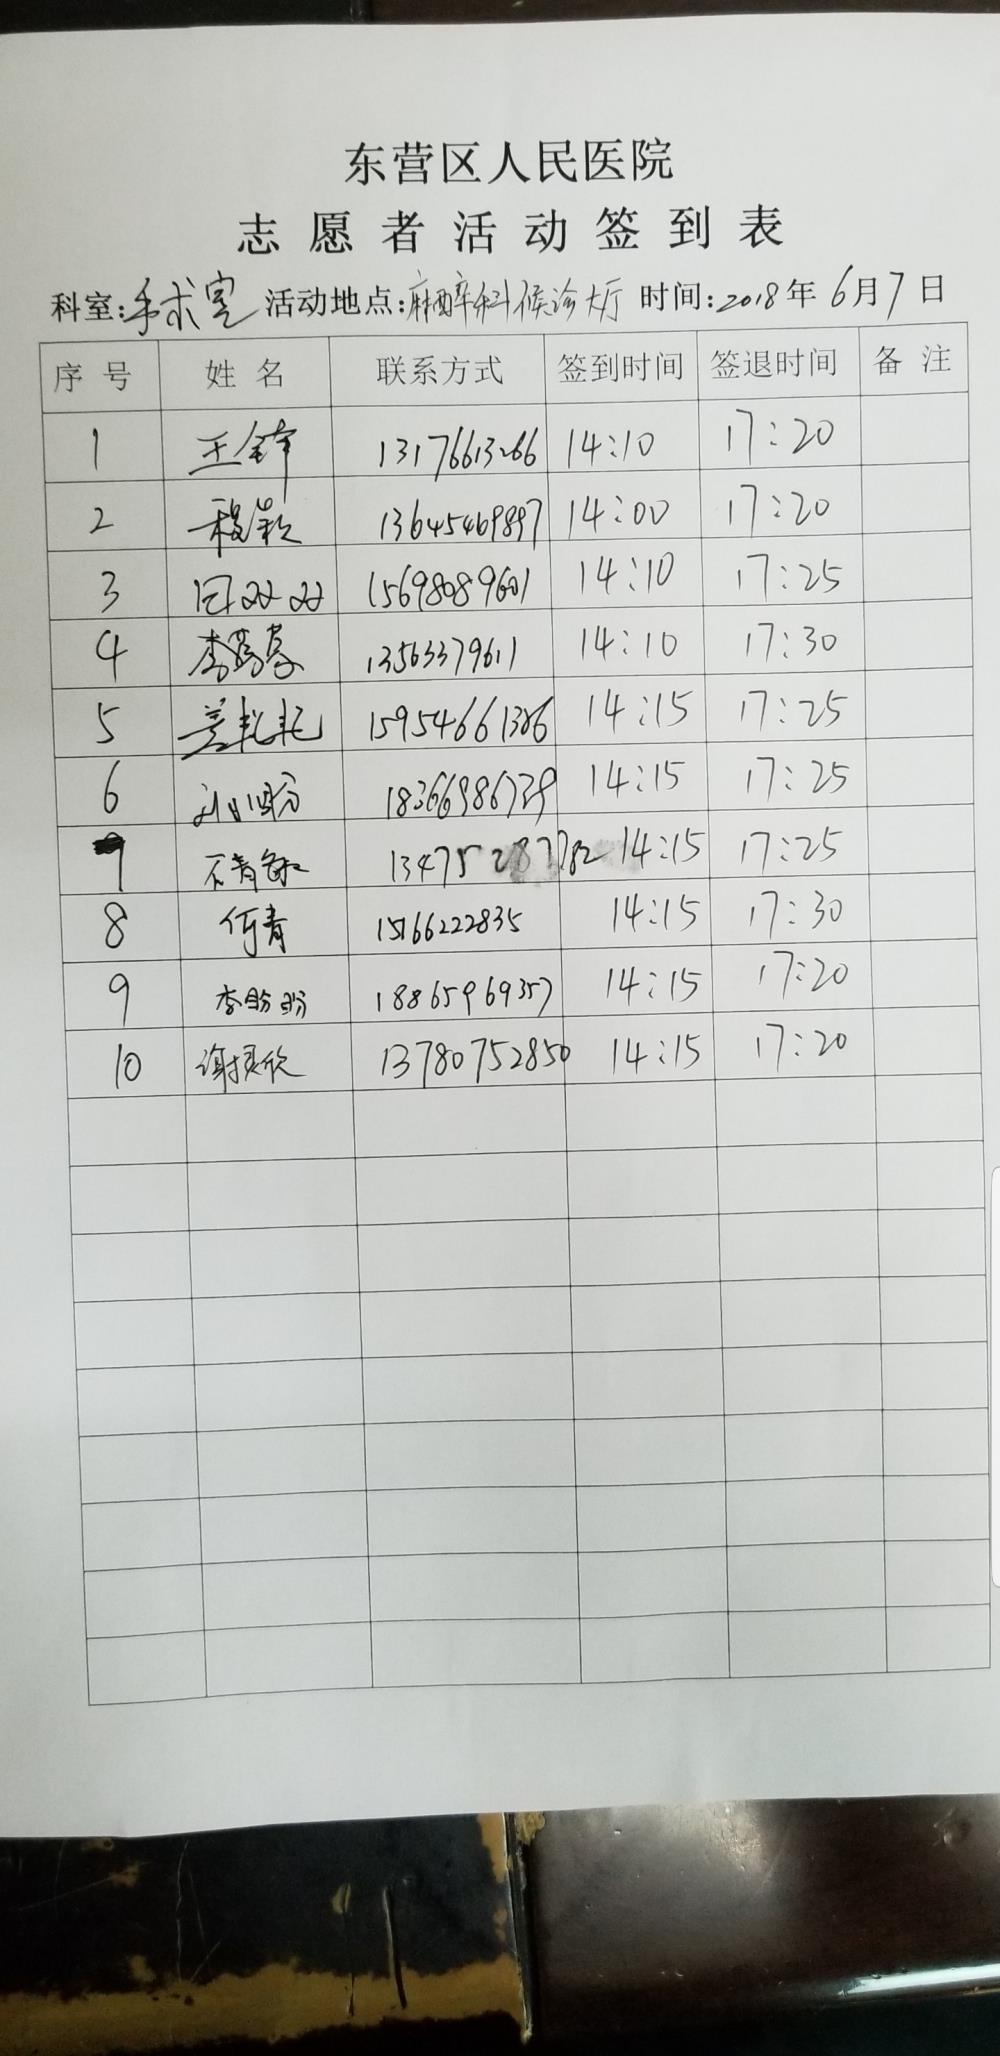 东营区人民医院
志愿者活动签到表
科室:手术室 活动地点:麻醉科候诊大厅 时间:2018年6月7日
序号 姓名 联系方式 签到时间 签退时间 备注
1 王锋 13176613266 14:10 17:20
2 程颖 13645469897 14:00 17:20
3 闫双双 15698089601 14:10 17:25
4 李 13563379611 14:10 17:30
5 盖耗耗 15954661386 14:15 17:25
6 18366986729 14:15 17:25
7 13475287782 14:15 17:25
8 何青 15166222835 14:15 17:30
9 李盼盼 18865969357 14:15 17:20
10 谢振欣 13780752850 14:15 17:20